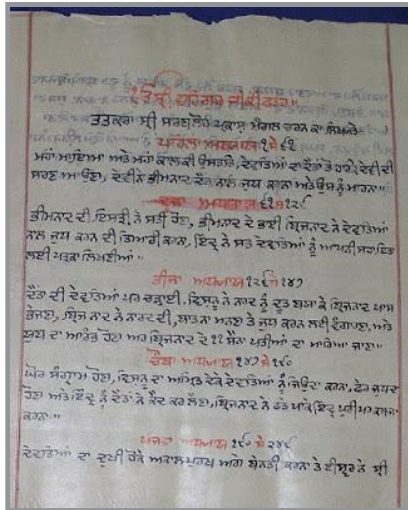 ੴ ਸ੍ਰੀ ਵਾਹਿਗੁਰੂ ਜੀ ਕੀ ਫਤਹ॥
ਤਤਕਰਾ ਸ੍ਰੀ ਸਰਬਲੋਹ ਪ੍ਰਕਾਸ਼ ਮੰਗਲ ਚਰਨ ਕਾ ਲਿਖਯਤੇ
ਪਹਿਲਾ ਅਧਯਾਯ ੧ ਸੇ ੬੧
ਮਹਾਂ ਮਾਇਆ ਅਤੇ ਮਹਾਂ ਕਾਲ ਕੀ ਉਸਤਤਿ, ਦੇਵਤਿਆਂ ਦਾ ਦੈਤਾਂ ਤੋਂ ਹਾਰਕੇ ਦੇਵੀ ਦੀ
ਸਰਣ ਆਉਣਾ, ਦੇਵੀ ਨੇ ਭੀਮਨਾਦ ਦੈਤ ਨਾਲ ਜੁਧ ਕਰਨਾ ਅਤੇ ਉਸ ਨੂੰ ਮਾਰਨਾ॥
ਦੂਜਾ ਅਧਯਾਯ ੬੧ ਸੇ ੧੨੬
ਭੀਮਨਾਦ ਦੀ ਇਸਤ੍ਰੀ ਨੇ ਸਤੀ ਹੋਣਾ, ਭੀਮਨਾਦ ਦੇ ਭਾਈ ਬ੍ਰਿਜਨਾਦ ਨੇ ਦੇਵਤਿਆਂ
ਨਾਲ ਜੁਧ ਕਰਨ ਦੀ ਤਿਆਰੀ ਕਰਨਾ, ਇੰਦ੍ਰ ਨੇ ਸਭ ਦੇਵਤਿਆਂ ਨੂੰ ਆਪਣੀ ਸਹਾਇਤਾ
ਲਈ ਪਤ੍ਰਕਾ ਲਿਖਣੀਆਂ॥
ਤੀਜਾ ਅਧਯਾਯ ੧੨੬ ਸੇ ੧੪੭
ਦੈਤਾਂ ਦੀ ਦੇਵਤਿਆਂ ਪਰ ਚੜ੍ਹਾਈ, ਵਿਸ਼ਨੂੰ ਨੇ ਨਾਰਦ ਨੂੰ ਦੂਤ ਬਣਾ ਕੇ ਬ੍ਰਿਜਨਾਦ ਪਾਸ
ਭੇਜਣਾ, ਬ੍ਰਿਜਨਾਦ ਨੇ ਨਾਰਦ ਦੀ, ਬਾਤ ਨਾ ਮਨਣਾ ਤੇ ਜੁਧ ਕਰਨ ਲਈ ਵੰਗਾਰਣਾ, ਅਤੇ
ਜੁਧ ਦਾ ਆਰੰਭ ਹੋਣਾ ਅਰ ਬ੍ਰਿਜਨਾਦ ਦੇ ੧੧ ਸੈਨਾ ਪਤੀਆਂ ਦਾ ਮਾਰਿਆ ਜਾਣਾ॥
ਚੌਥਾ ਅਧਯਾਯ ੧੪੭ ਸੇ ੧੬੦
ਘੋਰ ਸੰਗ੍ਰਾਮ ਹੋਣਾ, ਵਿਸ਼ਨੂੰ ਦਾ ਅੰਮ੍ਰਿਤ ਦੇਕੇ ਦੇਵਤਿਆਂ ਨੂੰ ਜਿਉਂਦਾ ਕਰਨਾ, ਫੇਰ ਜੁਧ ਦਾ
ਹੋਣਾ ਅਤੇ ਇੰਦ੍ਰ ਨੂੰ ਦੈਤਾਂ ਨੇ ਕੈਦ ਕਰ ਲੈਣਾ, ਬ੍ਰਿਜਨਾਦ ਨੇ ਫਤੇ ਪਾਕੇ ਇੰਦ੍ਰ ਪੁਰੀ ਪਰ ਕਬਜਾ
ਕਰਨਾ॥
ਪੰਜਵਾਂ ਅਧਯਾਯ ੧੬੦ ਸੇ ੨੪੬
ਦੇਵਤਿਆਂ ਦਾ ਦੁਖੀ ਹੋਕੇ ਅਕਾਲ ਪੁਰਖ ਅਗੇ ਬੇਨਤੀ ਕਰਨਾ ਤੇ ਈਸ਼੍ਵਰ ਨੇ ਸ੍ਰੀ